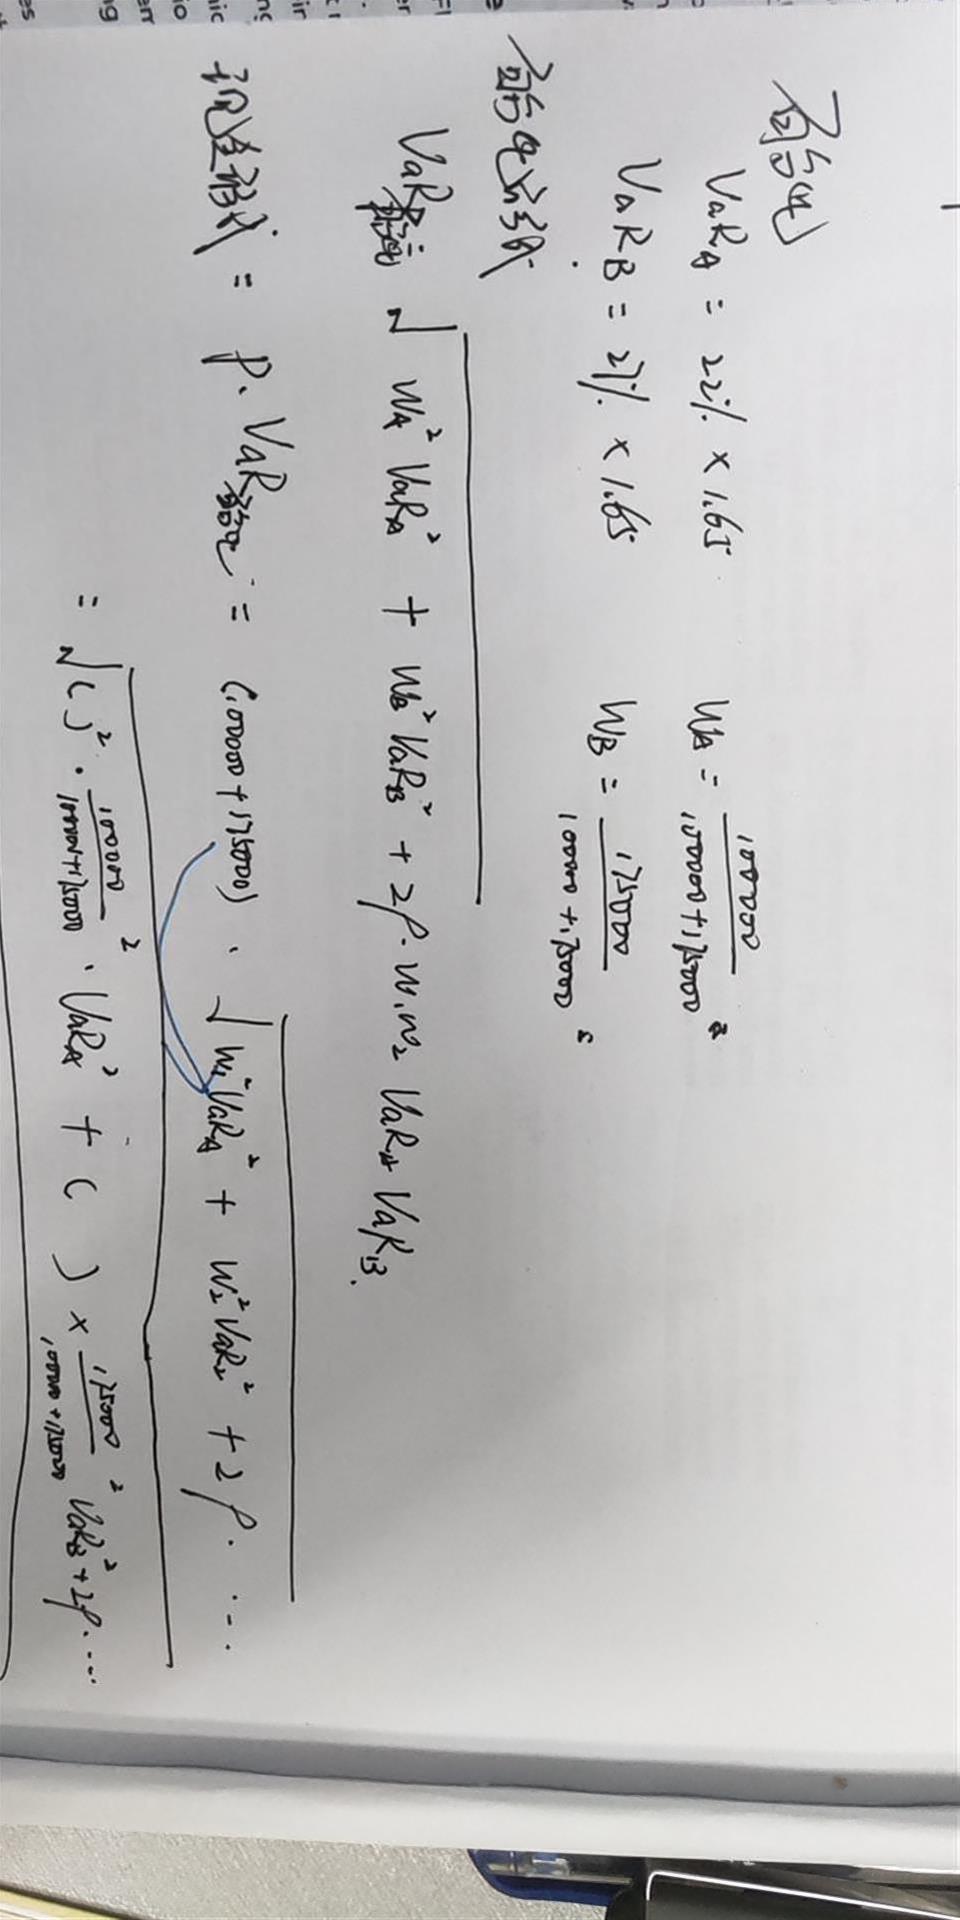 百分比
VaR_A = 22% × 1.65 W_A = 100000 / 100000+175000
VaR_B = 27% × 1.65 W_B = 175000 / 100000+175000
百分比形式
VaR百分比 √ W_A² VaR_A² + W_B² VaR_B² + 2ρ·W₁W₂ VaR_A VaR_B.
形式 = P·VaR百分比 = (100000+175000) · √ W₁²VaR_A² + W₂²VaR₂² + 2ρ. ...
= √( )² · 100000 / 100000+175000 ² · VaR_A² + ( ) × 175000 / 100000+175000 ² VaR_B² + 2ρ. ...